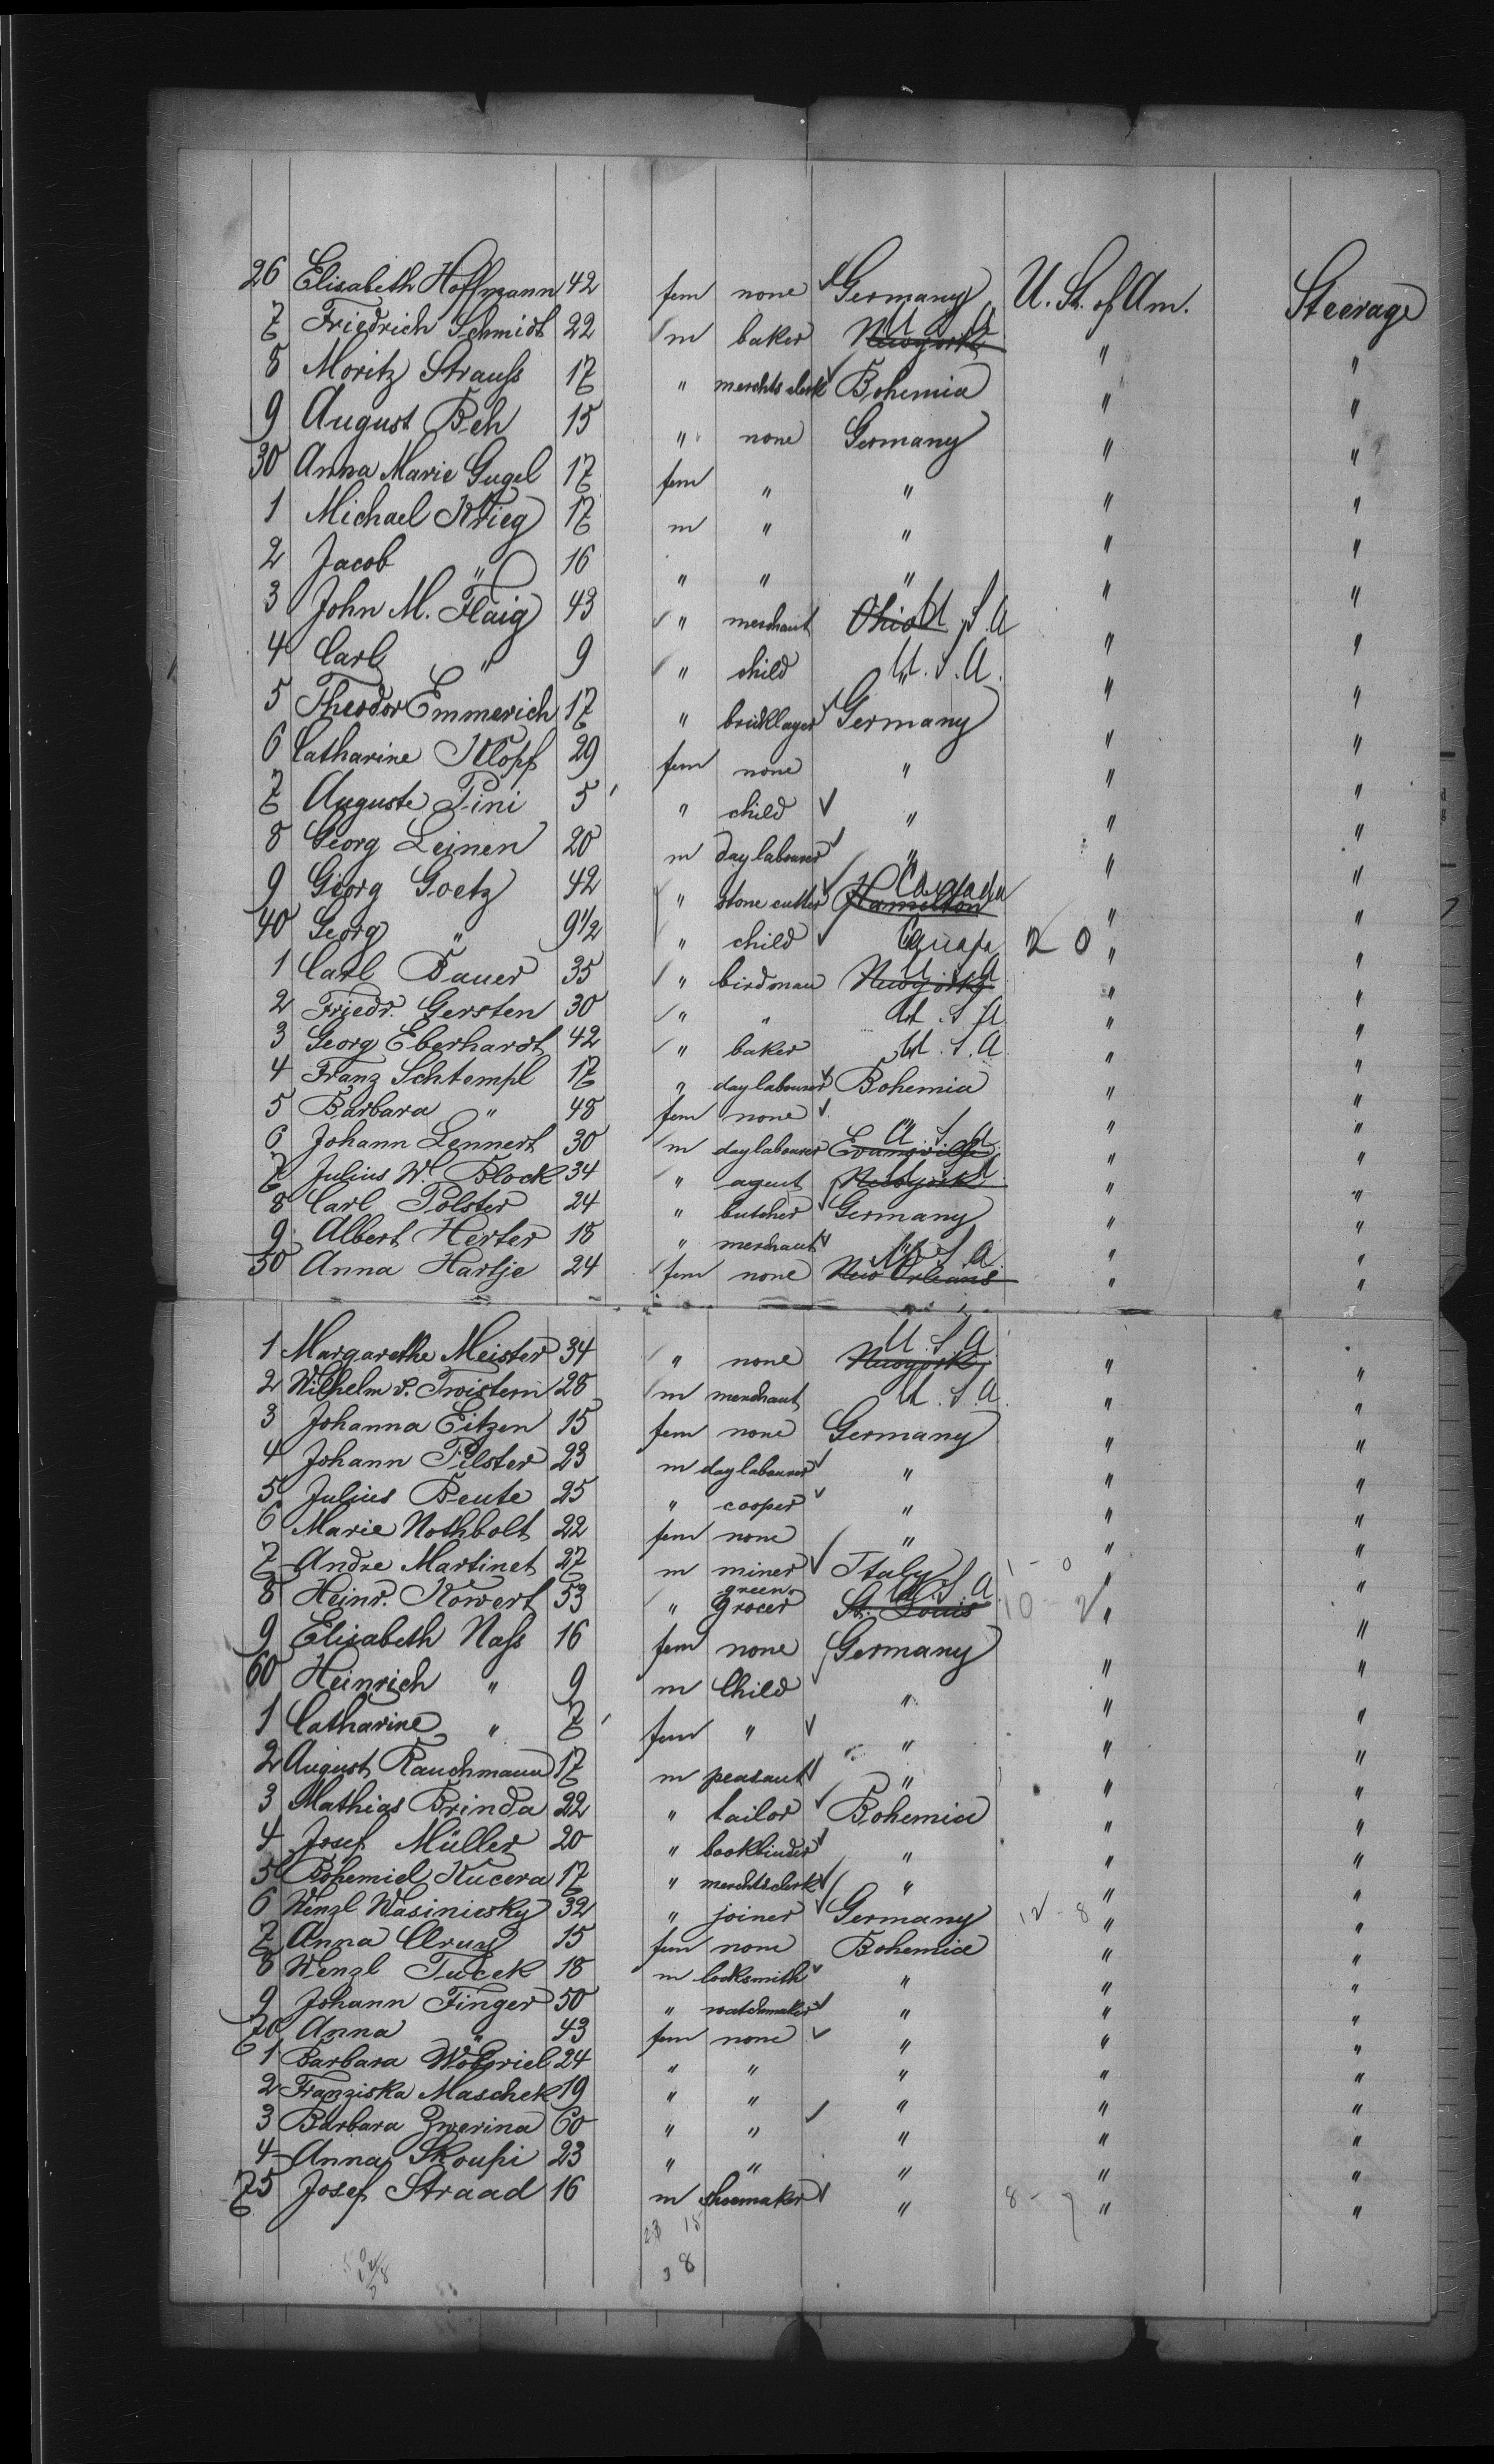 26 Elisabeth Hoffmann 42 fem none Germany U. St. of Am. Steerage
7 Friedrich Schmidt 22 m baker Newyork U S A " "
8 Moritz Strauss 17 " merchts clerk Bohemia " "
9 August Beh 15 " none Germany " "
30 Anna Marie Gugel 17 fem " " " "
1 Michael Krieg 17 m " " " "
2 Jacob " 16 " " " " "
3 John M. Flaig 43 " merchant Ohio U.S.A " "
4 Carl " 9 " child " U.S.A. " "
5 Theodor Emmerich 17 " bricklayer Germany " "
6 Catharine Klopf 29 fem none " " "
7 Auguste Pini 5 " child " " "
8 Georg Leinen 20 m day labourer " " "
9 Georg Goetz 42 " stone cutter Hamilton Canada " "
40 Georg " 9 1/2 " child Canada 2 0 " "
1 Carl Bauer 35 " birdman Newyork U S A " "
2 Friedr. Gersten 30 " " U.S.A " "
3 Georg Eberhardt 42 " baker U.S.A " "
4 Franz Schtempl 17 " day labourer Bohemia " "
5 Barbara " 48 fem none " " "
6 Johann Lennert 30 m day labourer Evansville U.S.A " "
7 Julius W. Block 34 " agent Newyork U.S.A " "
8 Carl Polster 24 " butcher Germany " "
9 Albert Herter 18 " merchant " " "
50 Anna Hartje 24 fem none New Orleans U.S.A " "
1 Margarethe Meister 34 " none Newyork U.S.A " "
2 Wilhelm v. Twistern 28 m merchant U.S.A. " "
3 Johanna Eitzen 15 fem none Germany " "
4 Johann Pilster 23 m day labourer " " "
5 Julius Beute 25 " cooper " " "
6 Marie Nothbolt 22 fem none " " "
7 Andre Martinet 27 m miner Italy 1 - 0 " "
8 Heinr. Kowert 53 " green grocer St. Louis U.S.A. 10 - 2 " "
9 Elisabeth Nass 16 fem none Germany " "
60 Heinrich " 9 m Child " " "
1 Catharine " 7 fem " " " "
2 August Rauchmann 17 m peasant " " "
3 Mathias Brinda 22 " tailor Bohemia " "
4 Josef Müller 20 " bookbinder " " "
5 Bohemiel Kucera 17 " merchts clerk " " "
6 Wenzl Wasiniesky 32 " joiner Germany 12 - 8 " "
7 Anna 15 fem none Bohemia " "
8 Wenzl Tucek 18 m locksmith " " "
9 Johann Finger 50 " watchmaker " " "
70 Anna " 43 fem none " " "
1 Barbara 24 " " " " "
2 Franziska Maschek 19 " " " " "
3 Barbara Zwerina 60 " " " " "
4 Anna Skoupi 23 " " " " "
75 Josef Straad 16 m shoemaker " 8 - 7 " "